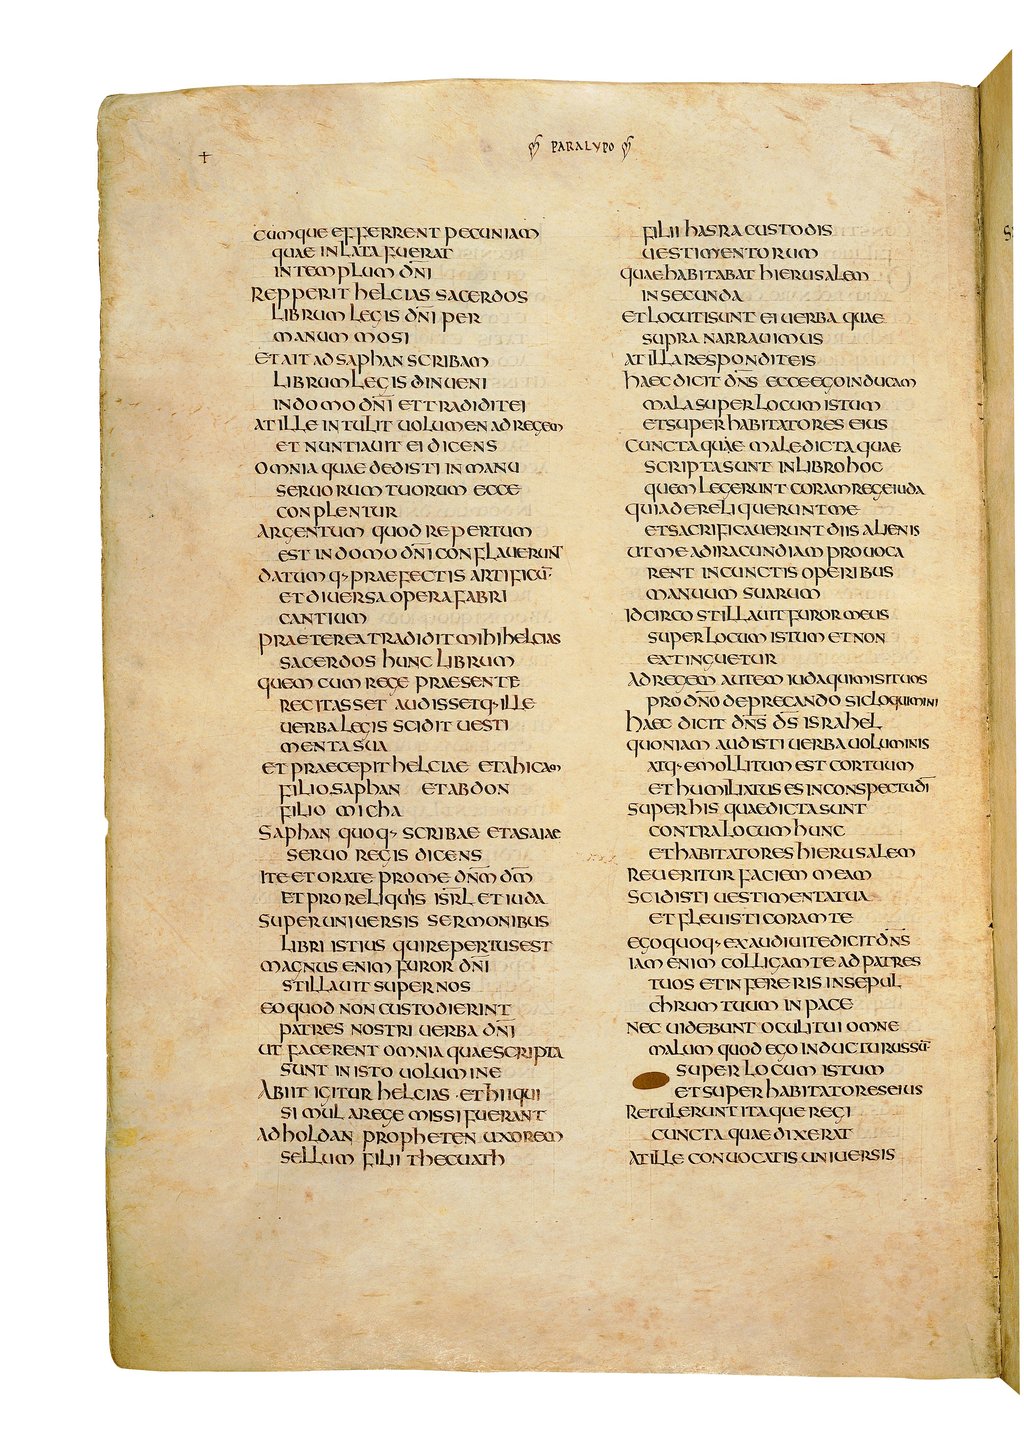 PARALYPO
cumque efferrent pecuniam
quae inlata fuerat
in templum dn̄i
repperit helcias sacerdos
librum legis dn̄i per
manum mosi
et ait ad saphan scribam
librum legis dinueni
in domo dn̄i et tradidit ei
at ille intulit uolumen ad regem
et nuntiauit ei dicens
omnia quae dedisti in manu
seruorum tuorum ecce
conplentur
argentum quod repertum
est in domo dn̄i conflauerunt
datumq· praefectis artificū·
et diuersa opera fabri
cantium
praeterea tradidit mihi helcias
sacerdos hunc librum
quem cum rege praesente
recitasset audissetq· ille
uerba legis scidit uesti
menta sua
et praecepit helciae et ahicam
filio saphan et abdon
filio micha
saphan quoq· scribae et asaiae
seruo regis dicens
ite et orate pro me dn̄m dm̄
et pro reliquis isrl̄ et iuda
super uniuersis sermonibus
libri istius qui repertus est
magnus enim furor dn̄i
stillauit super nos
eo quod non custodierint
patres nostri uerba dn̄i
ut facerent omnia quae scripta
sunt in isto uolumine
abiit igitur helcias · et hii qui
simul a rege missi fuerant
ad holdan propheten uxorem
sellum filii thecuath
filii hasra custodis
uestimentorum
quae habitabat hierusalem
in secunda
et locuti sunt ei uerba quae
supra narrauimus
at illa respondit eis
haec dicit dn̄s ecce ego inducam
mala super locum istum
et super habitatores eius
cuncta quae maledicta quae
scripta sunt in libro hoc
quem legerunt coram rege iuda
quia dereliquerunt me
et sacrificauerunt diis alienis
ut me ad iracundiam prouoca
rent in cunctis operibus
manuum suarum
idcirco stillauit furor meus
super locum istum et non
extinguetur
ad regem autem iuda qui misit uos
pro dn̄o deprecando sic loquimini
haec dicit dn̄s ds̄ israhel
quoniam audisti uerba uoluminis
atq· emollitum est cor tuum
et humiliatus es in conspectu dī
super his quae dicta sunt
contra locum hunc
et habitatores hierusalem
reueritur faciem meam
scidisti uestimenta tua
et fleuisti coram te
ego quoq· exaudiui te dicit dn̄s
iam enim colligam te ad patres
tuos et infereris in sepul
chrum tuum in pace
nec uidebunt oculi tui omne
malum quod ego inducturus sū·
super locum istum
et super habitatores eius
retulerunt itaque regi
cuncta quae dixerat
at ille conuocatis uniuersis